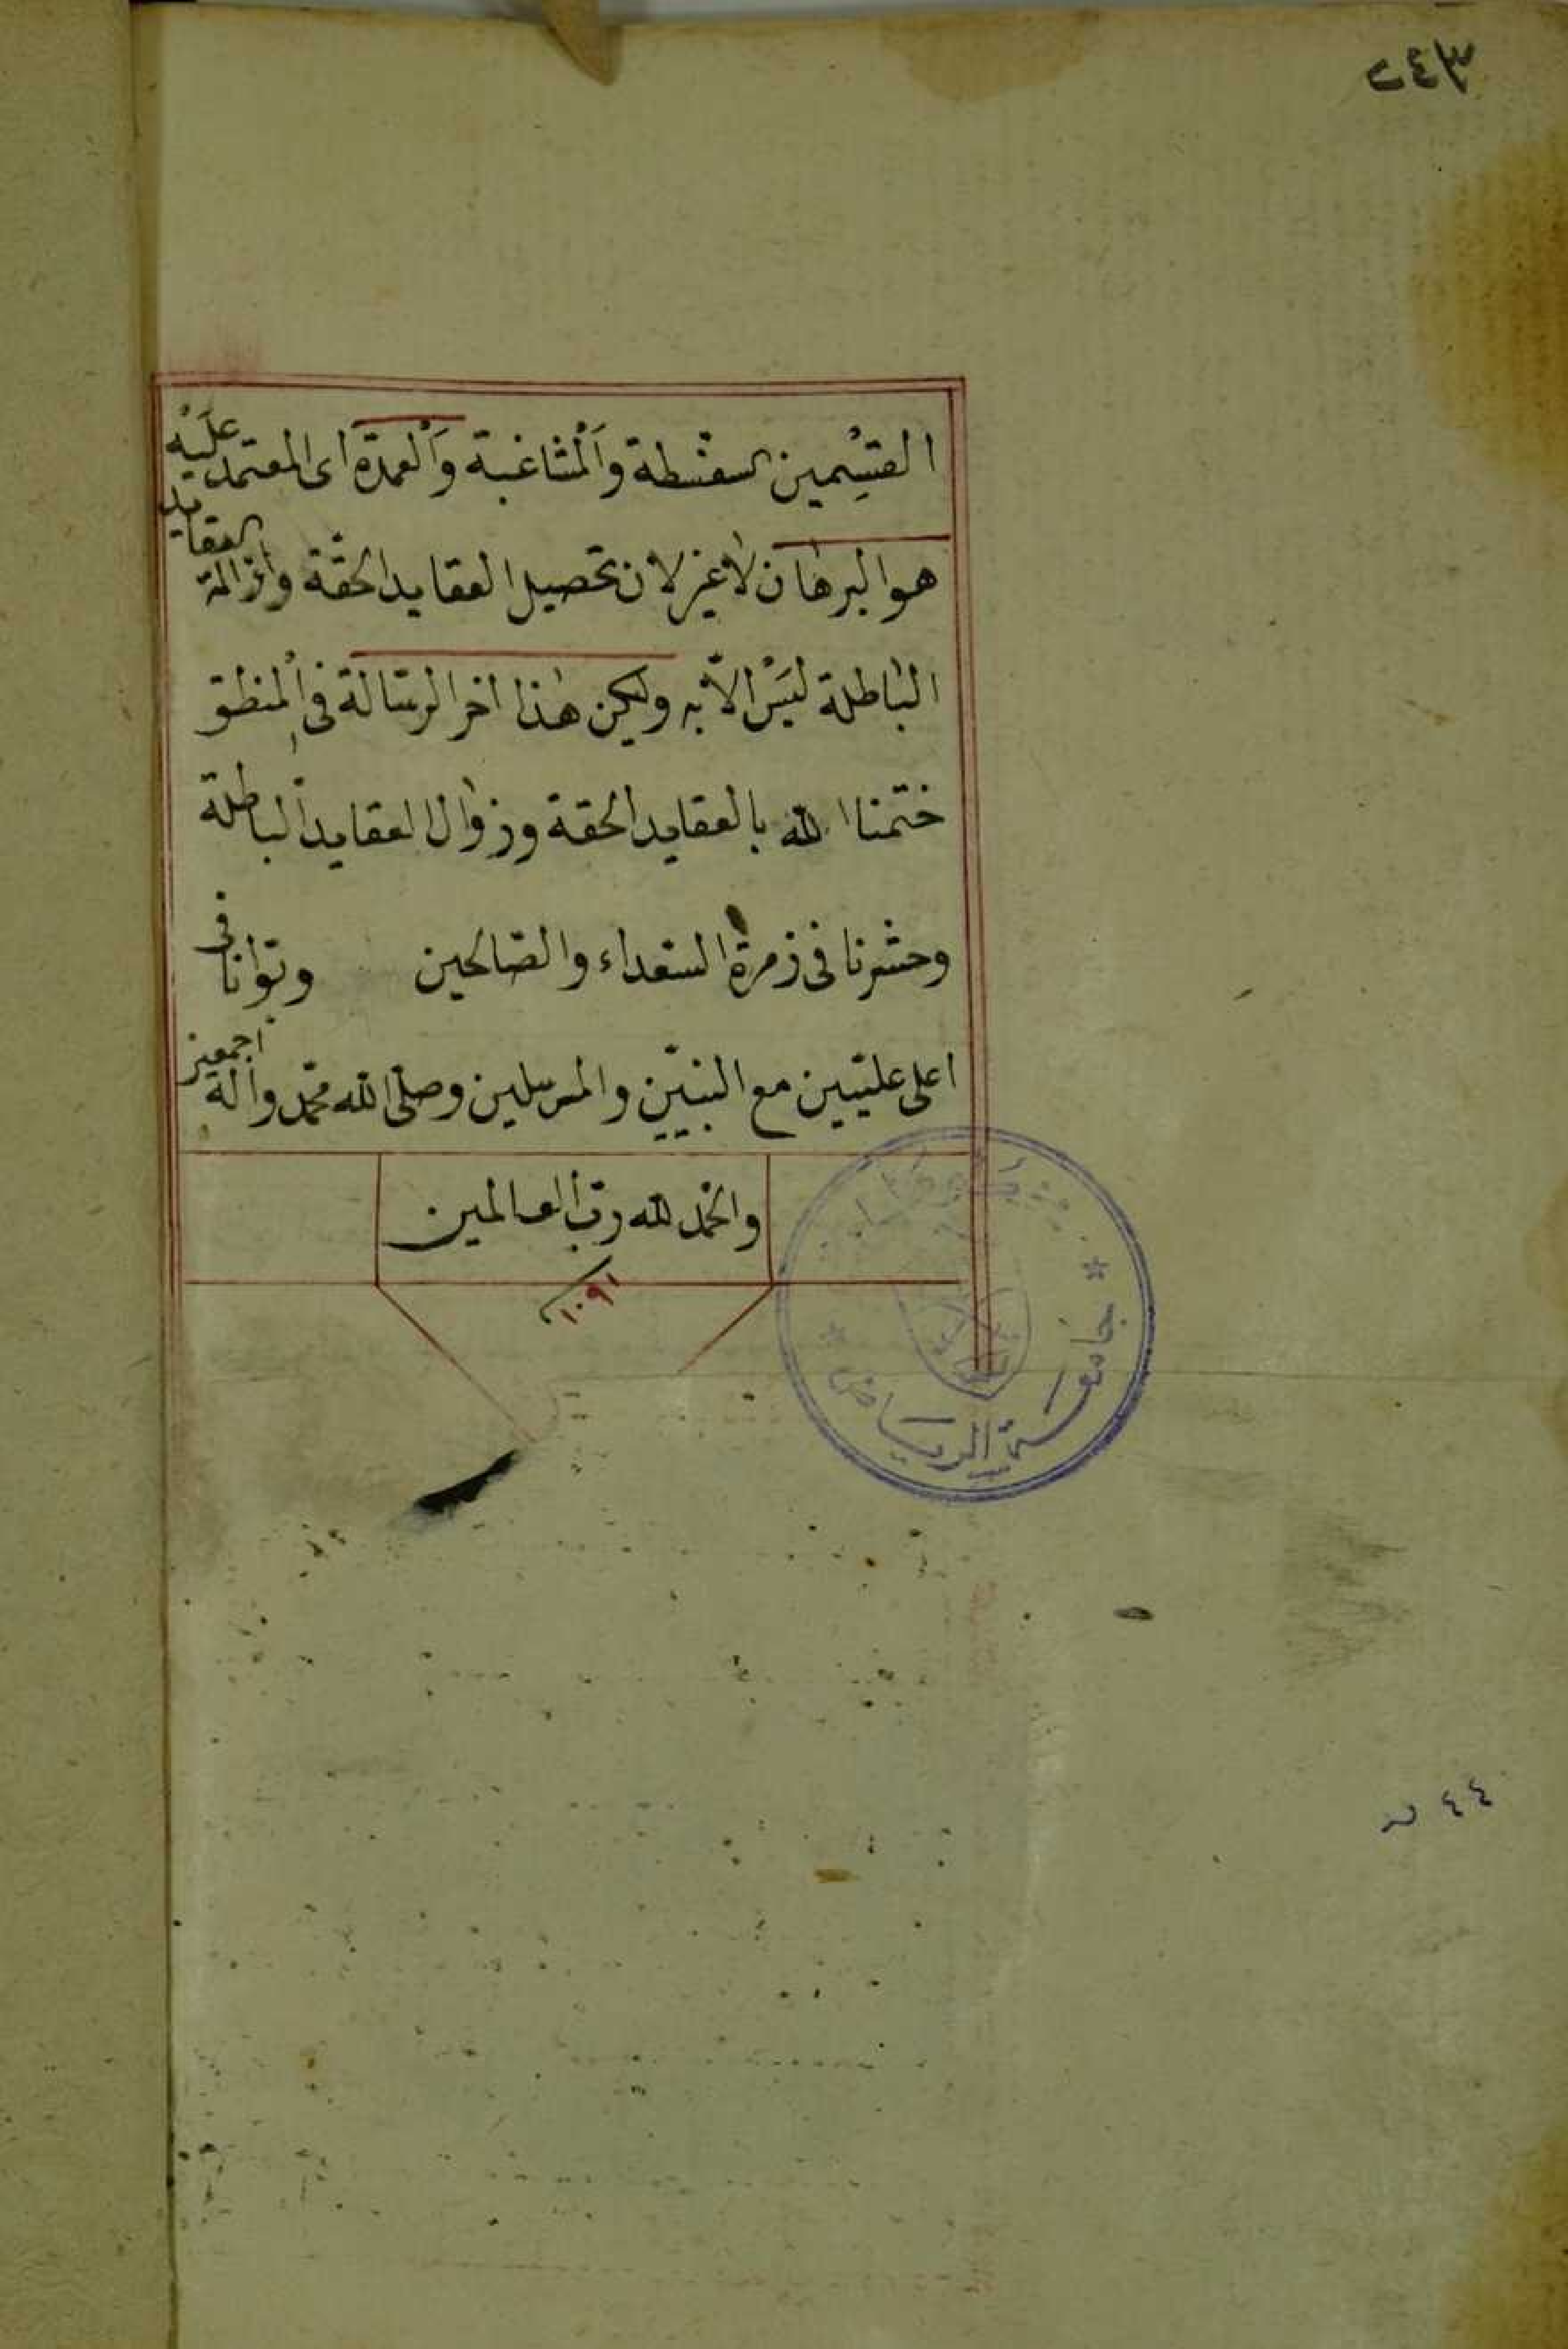 ٢٤٣
القسمين السفسطة والمشاغبة والعمدة اى المعتمد عليه
هو البرهان لا غير لان تحصيل العقايد الحقة وازالة العقايد
الباطلة ليس الا به وليكن هذا اخر الرسالة فى المنطق
ختمنا الله بالعقايد الحقة وزوال العقايد الباطلة
وحشرنا فى زمرة السعداء والصالحين وبوانا فى
اعلى عليين مع النبيين والمرسلين وصلى الله محمد وآله اجمعين
والحمد لله رب العالمين
١٠٩١
جامعة الرياض
٤٤